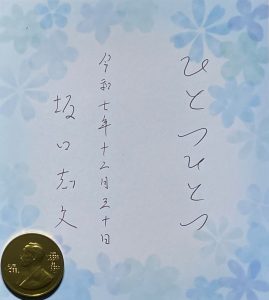 ひとつひとつ
令和七年十二月三十日
坂口志文